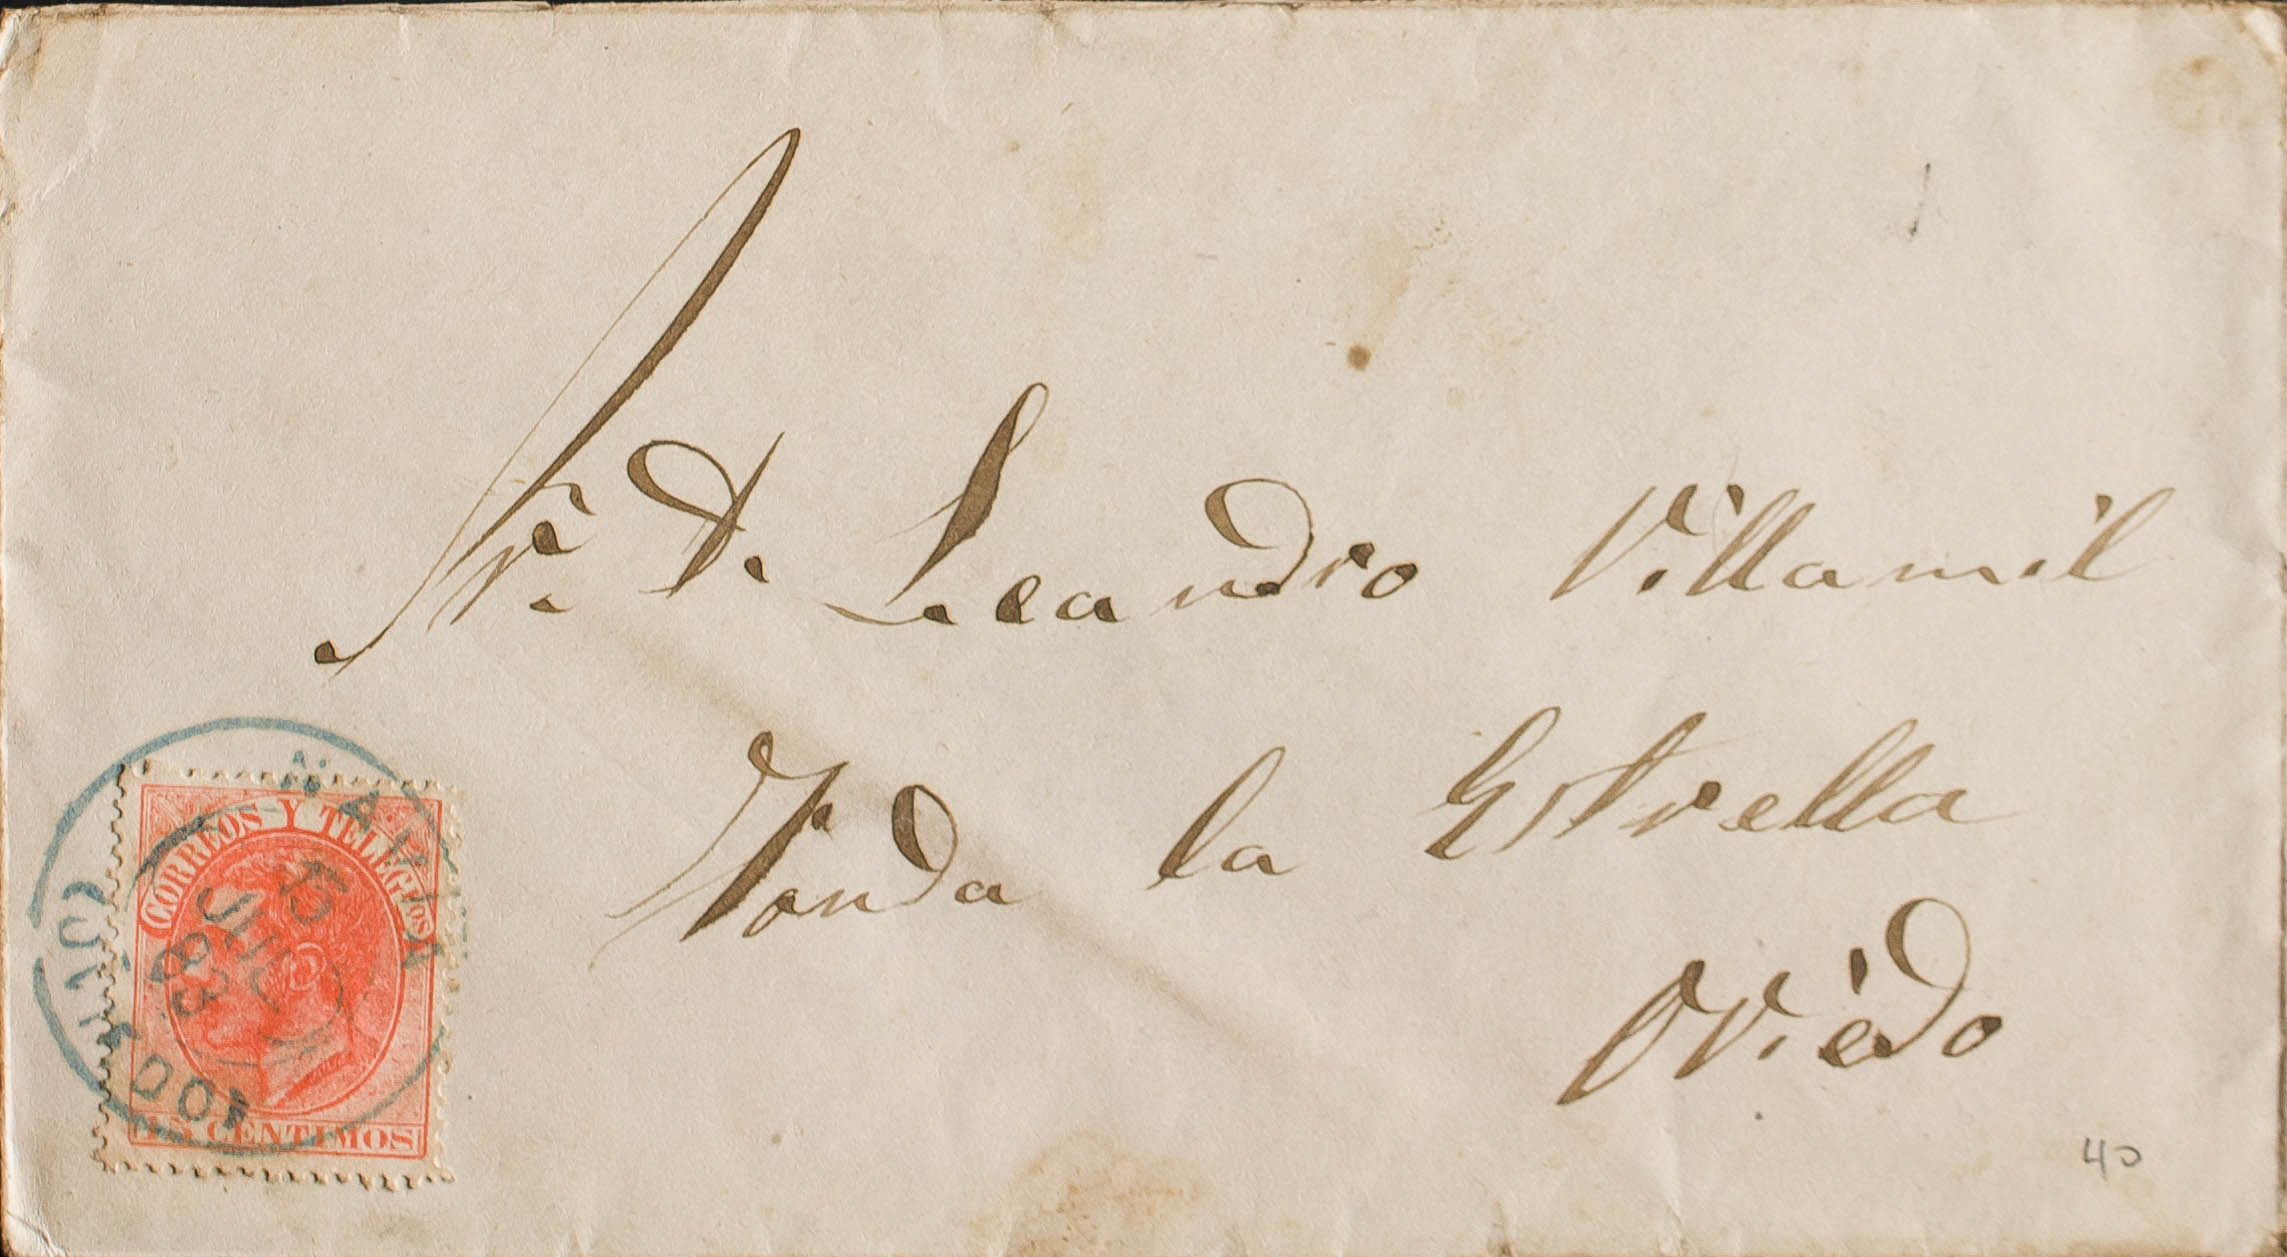 Sr. D. Leandro Villamil
Fonda la Estrella
Oviedo
40
CORREOS Y TELEGFOS
15 CENTIMOS
NAVIA
15
JUL
83
OVIEDO